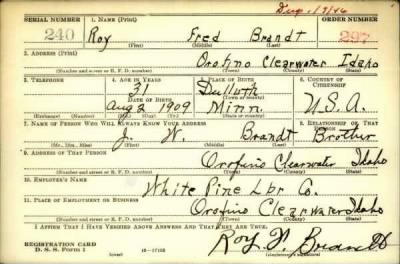 Dup. 1/9/46
SERIAL NUMBER 1. NAME (Print) ORDER NUMBER
240 Roy Fred Brandt 297
(First) (Middle) (Last)
2. ADDRESS (Print)
Orofino Clearwater Idaho
(Number and street or R. F. D. number) (Town) (County) (State)
3. TELEPHONE 4. AGE IN YEARS 5. PLACE OF BIRTH 6. COUNTRY OF CITIZENSHIP
31 Dulluth
DATE OF BIRTH (Town or county)
Aug 2 1909 Minn. U.S.A.
(Exchange) (Number) (Mo.) (Day) (Yr.) (State or country)
7. NAME OF PERSON WHO WILL ALWAYS KNOW YOUR ADDRESS 8. RELATIONSHIP OF THAT PERSON
J. W. Brandt Brother
(Mr., Mrs., Miss) (First) (Middle) (Last)
9. ADDRESS OF THAT PERSON
Orofino Clearwater Idaho
(Number and street or R. F. D. number) (Town) (County) (State)
10. EMPLOYER'S NAME
White Pine Lbr Co.
11. PLACE OF EMPLOYMENT OR BUSINESS
Orofino Clearwater Idaho
(Number and street or R. F. D. number) (Town) (County) (State)
I AFFIRM THAT I HAVE VERIFIED ABOVE ANSWERS AND THAT THEY ARE TRUE.
REGISTRATION CARD
D. S. S. Form 1 (over) 16—17105 Roy F. Brandt
(Registrant's signature)